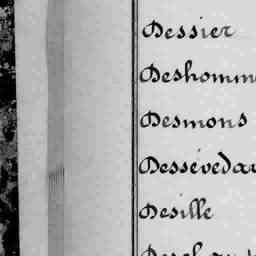 Dessier
Deshomm
Desmons
Dessévedav
Desille